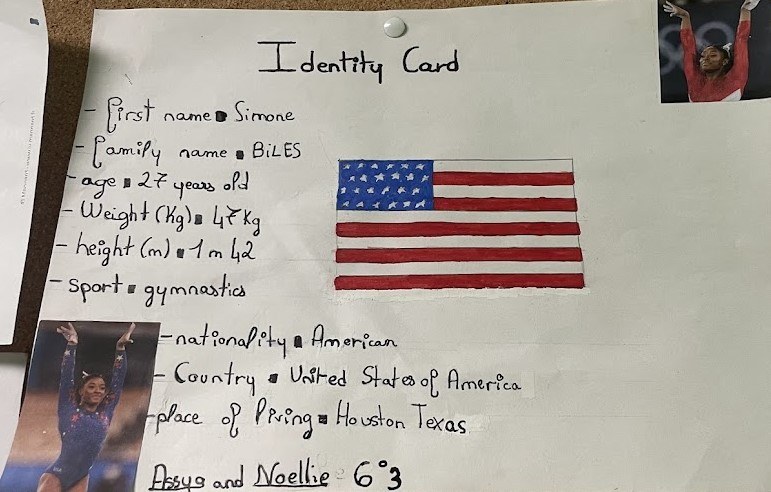 Identity Card
- First name : Simone
- Family name : BiLES
- age : 27 years old
- Weight (Kg) : 47 Kg
- height (m) : 1 m 42
- sport : gymnastics
- nationality : American
- Country : United States of America
- place of living : Houston Texas
Assya and Noellie - 6°3